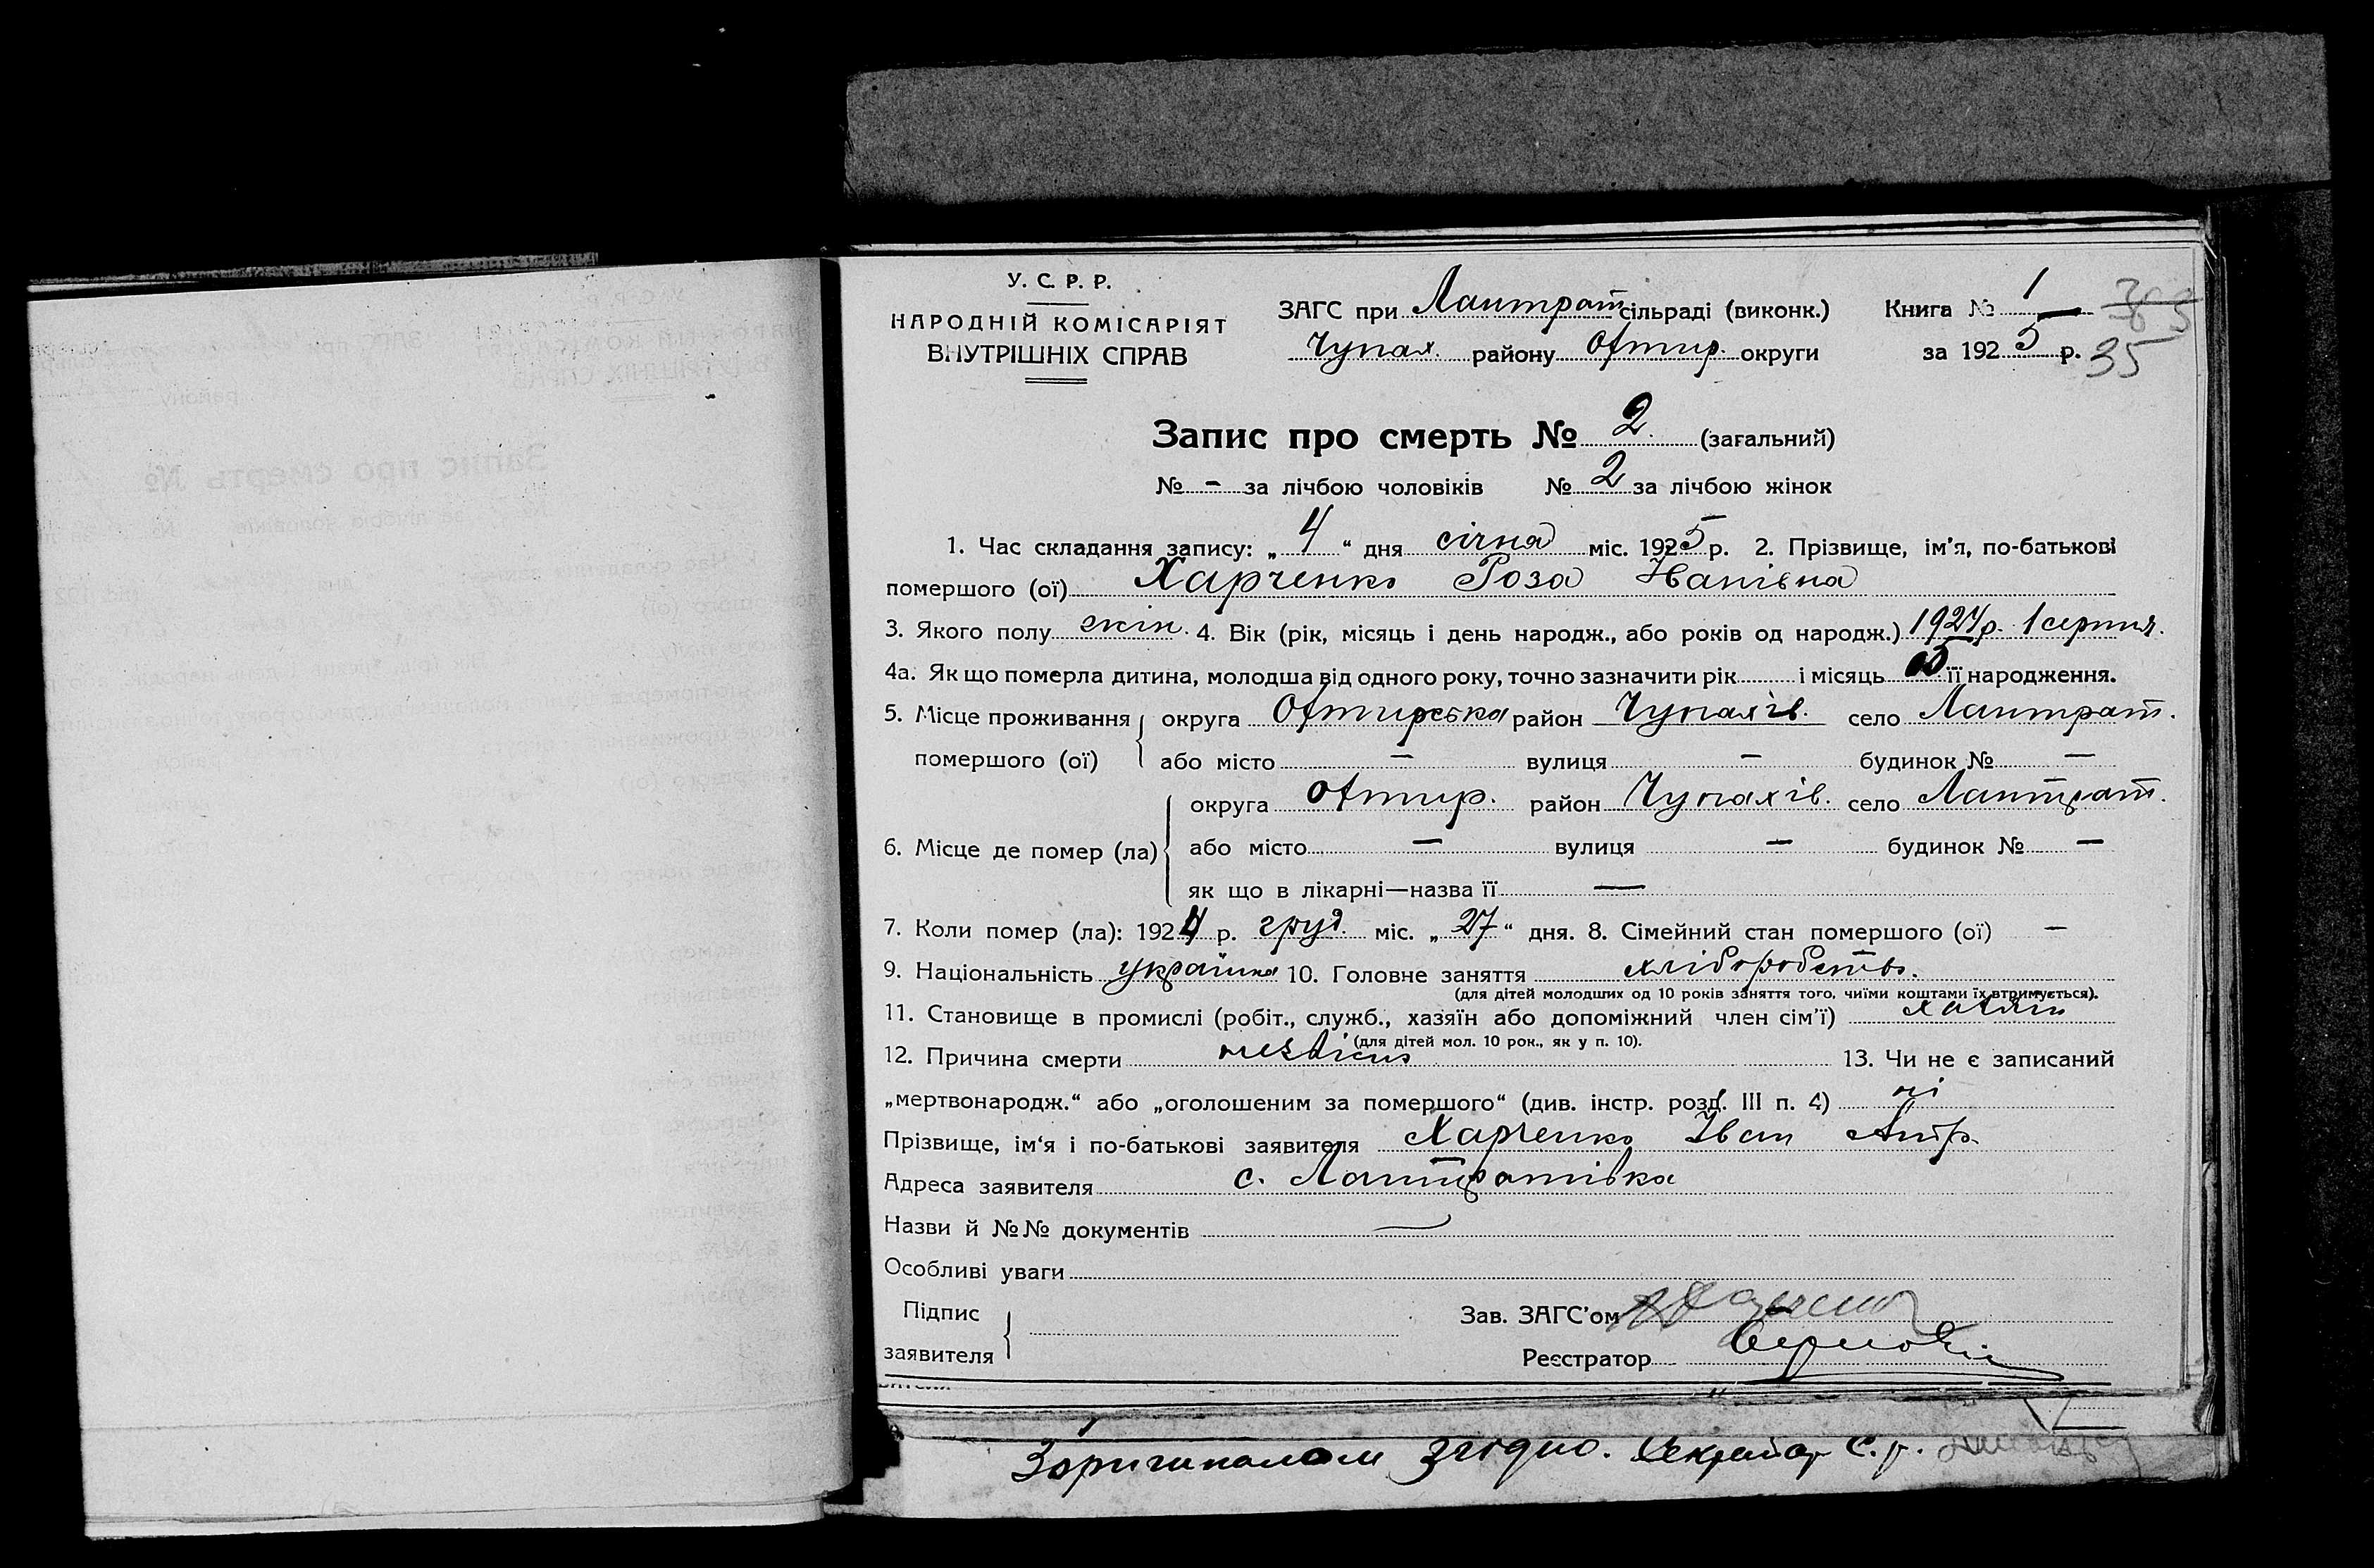 У. С. Р. Р.
НАРОДНІЙ КОМІСАРІЯТ
ВНУТРІШНІХ СПРАВ
ЗАГС при Лантрат сільраді (виконк.)
Чупах. району Охтир. округи
Книга № 1
за 1925 р. 35
Запис про смерть № 2. (загальний)
№ - за лічбою чоловіків № 2 за лічбою жінок
1. Час складання запису: „4“ дня січня міс. 1925 р. 2. Прізвище, ім'я, по-батькові
помершого (ої) Харченко Роза Іванівна
3. Якого полу жін. 4. Вік (рік, місяць і день народж., або років од народж.) 1924 р. 1 серпня.
4а. Як що померла дитина, молодша від одного року, точно зазначити рік і місяць її народження.
5. Місце проживання помершого (ої) округа Охтирська район Чупахів. село Лантрат.
або місто — вулиця — будинок № —
6. Місце де помер (ла) округа Охтир. район Чупахів. село Лантрат.
або місто — вулиця — будинок № —
як що в лікарні—назва її —
7. Коли помер (ла): 1924 р. груд. міс. „27“ дня. 8. Сімейний стан помершого (ої) —
9. Національність українка 10. Головне заняття хліборобство.
(для дітей молодших од 10 років заняття того, чиїми коштами їх втримується).
11. Становище в промислі (робіт., служб., хазяїн або допоміжний член сім'ї) хазяїн
(для дітей мол. 10 рок., як у п. 10).
12. Причина смерти 13. Чи не є записаний
„мертвонародж.“ або „оголошеним за помершого“ (див. інстр. розд. III п. 4) ні
Прізвище, ім'я і по-батькові заявителя Харченко Іван
Адреса заявителя с. Лантратівка
Назви й №№ документів —
Особливі уваги
Підпис
заявителя
Зав. ЗАГС'ом
Реєстратор
З оригиналом згідно. Секретар С. р.